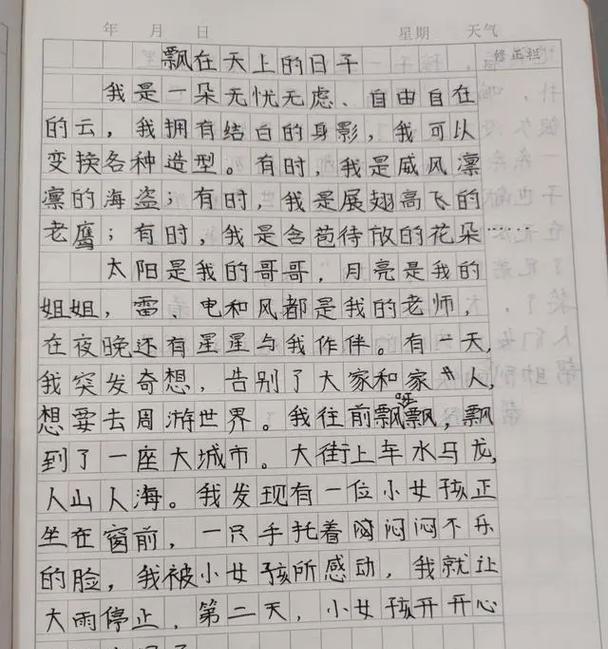 年 月 日 星期 天气
飘在天上的日子 修正栏
我是一朵无忧无虑、自由自在
的云，我拥有结白的身影，我可以
变换各种造型。有时，我是威风凛
凛的海盗；有时，我是展翅高飞的
老鹰；有时，我是含苞待放的花朵……
太阳是我的哥哥，月亮是我的
姐姐，雷、电和风都是我的老师，
在夜晚还有星星与我作伴。有一天，
我突发奇想，告别了大家和家人，
想要去周游世界。我往前飘呀飘，飘
到了一座大城市。大街上车水马龙，
人山人海。我发现有一位小女孩正
坐在窗前，一只手托着闷闷不乐
的脸，我被小女孩所感动，我就让
大雨停止，第二天，小女孩开开心